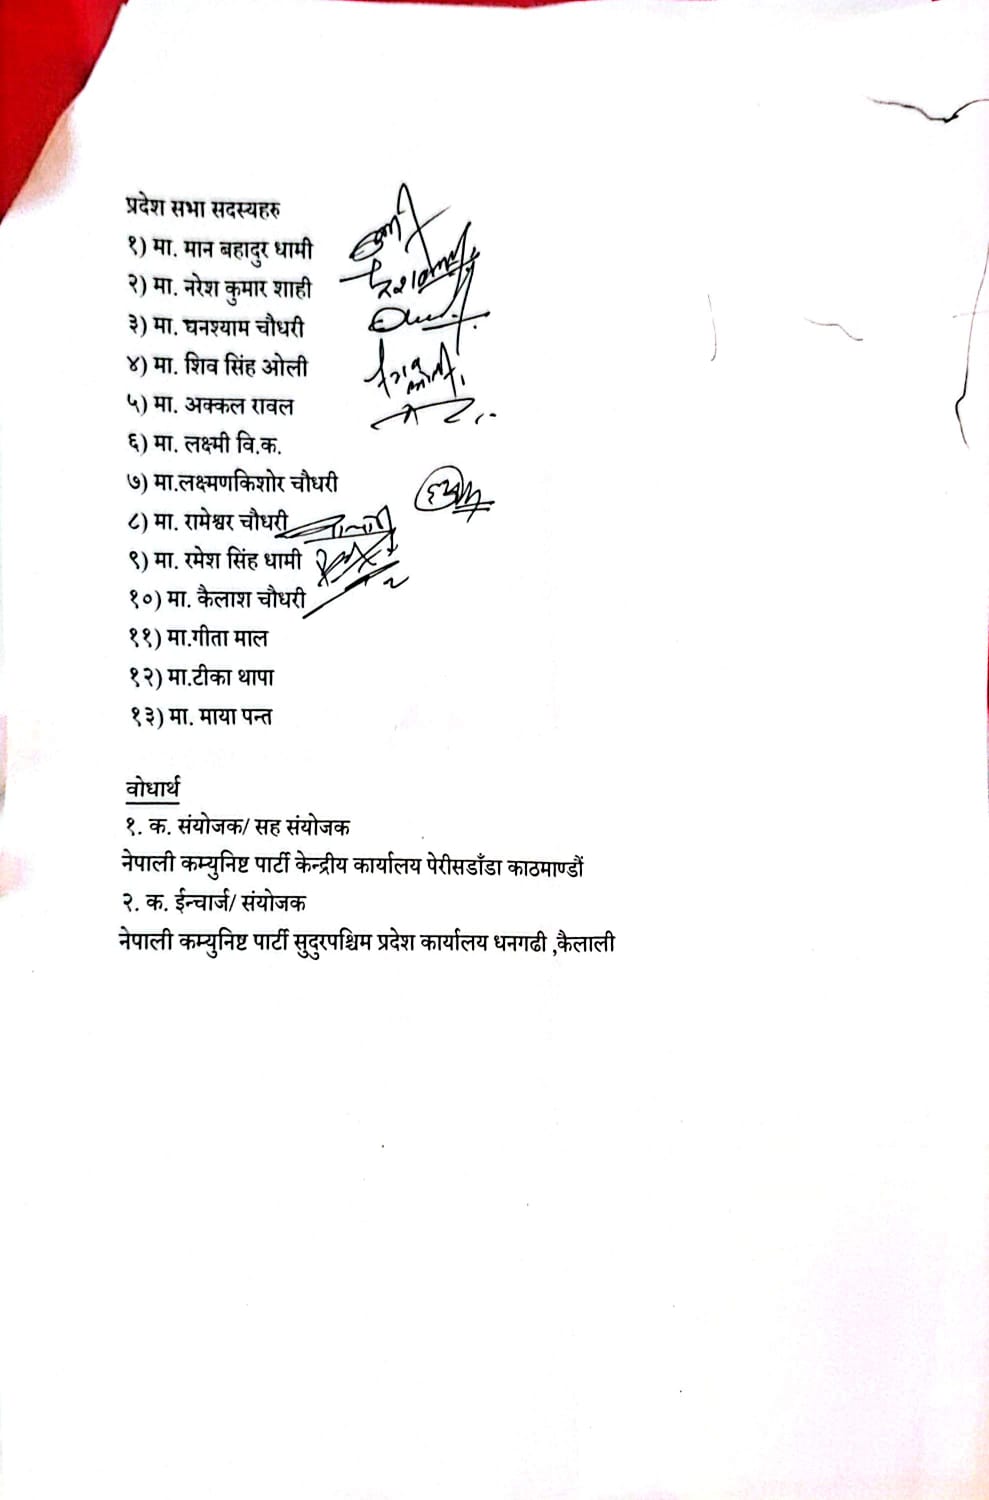 प्रदेश सभा सदस्यहरु
१) मा. मान बहादुर धामी
२) मा. नरेश कुमार शाही
३) मा. घनश्याम चौधरी
४) मा. शिव सिंह ओली
५) मा. अक्कल रावल
६) मा. लक्ष्मी वि.क.
७) मा.लक्ष्मणकिशोर चौधरी
८) मा. रामेश्वर चौधरी
९) मा. रमेश सिंह धामी
१०) मा. कैलाश चौधरी
११) मा.गीता माल
१२) मा.टीका थापा
१३) मा. माया पन्त
वोधार्थ
१. क. संयोजक/ सह संयोजक
नेपाली कम्युनिष्ट पार्टी केन्द्रीय कार्यालय पेरीसडाँडा काठमाण्डौं
२. क. ईन्चार्ज/ संयोजक
नेपाली कम्युनिष्ट पार्टी सुदुरपश्चिम प्रदेश कार्यालय धनगढी ,कैलाली